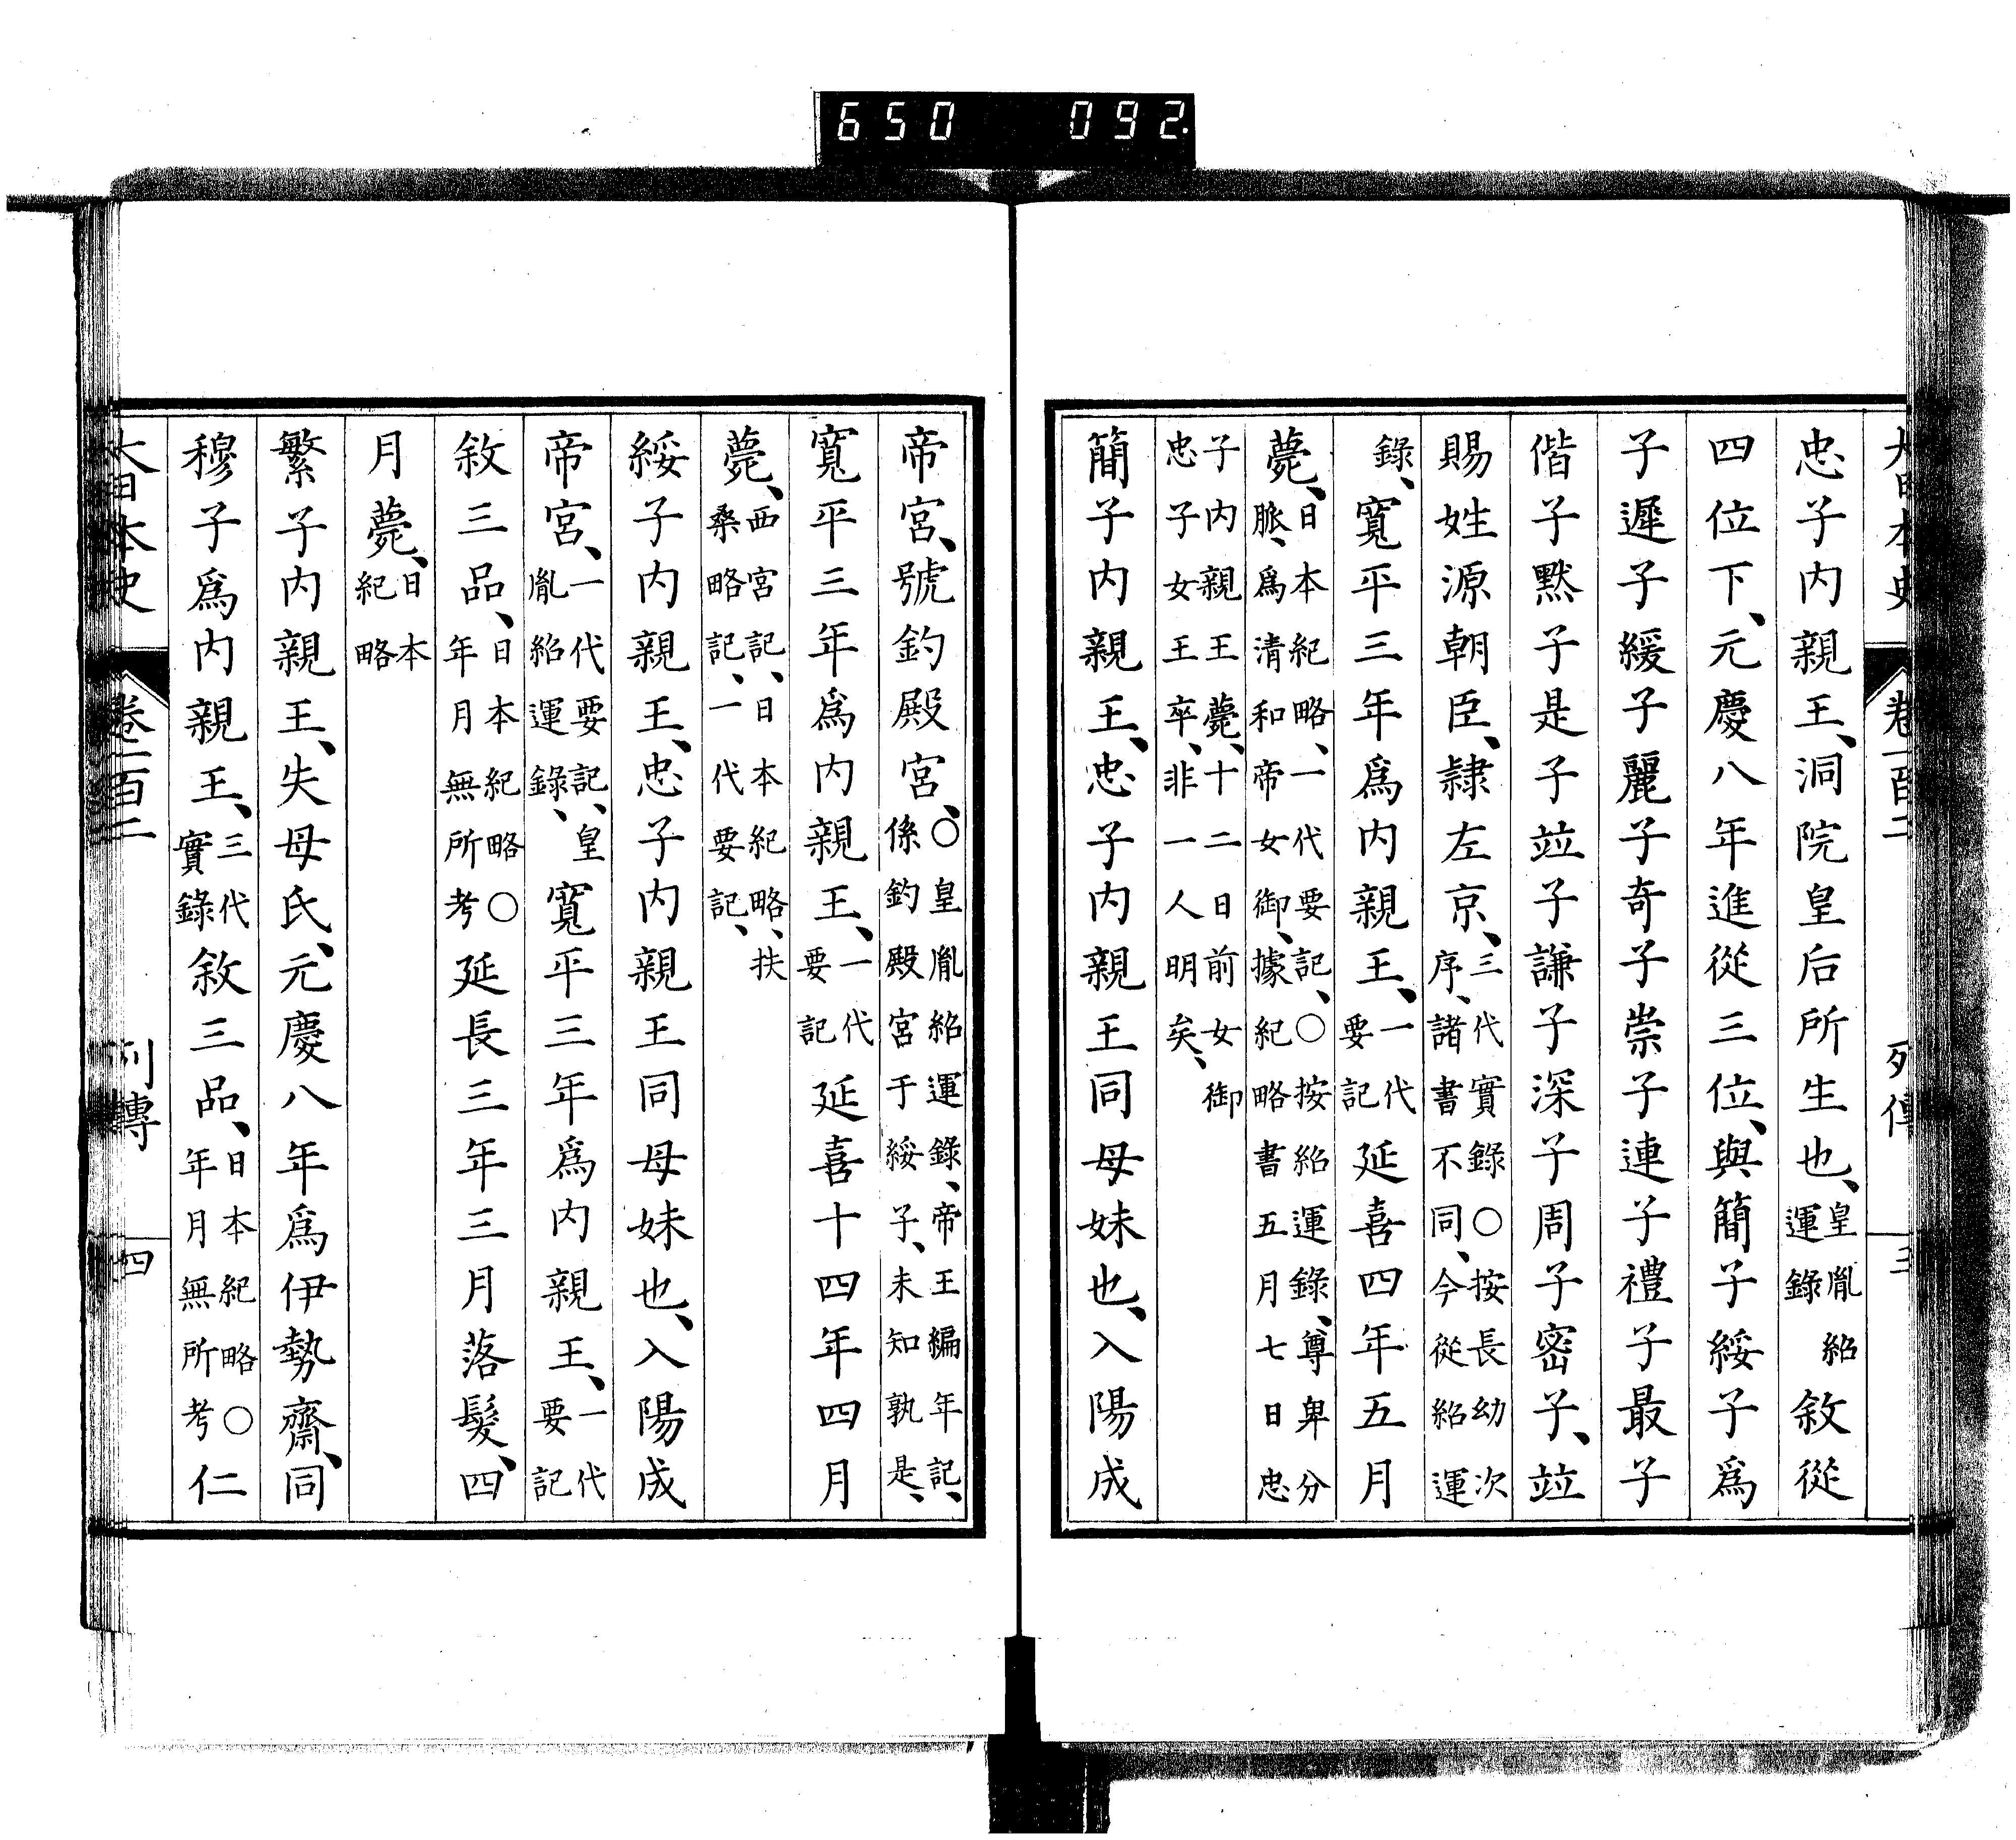 650 092
大日本史 卷一百二 列傳 三
忠子内親王、洞院皇后所生也、皇胤紹運錄敘從
四位下、元慶八年進從三位、與簡子綏子爲
子遲子緩子麗子奇子崇子連子禮子最子
偕子黙子是子竝子謙子深子周子密子、竝
賜姓源朝臣、隷左京、三代實錄○按長幼次序、諸書不同、今從紹運
錄、寬平三年爲内親王、一代要記延喜四年五月
薨、日本紀略、一代要記、○按紹運錄、尊卑分脈、爲清和帝女御、據紀略書五月七日忠
子内親王薨、十二日前女御忠子女王卒、非一人明矣、
簡子内親王、忠子内親王同母妹也、入陽成
帝宮、號釣殿宮、○皇胤紹運錄、帝王編年記、係釣殿宮于綏子、未知孰是、
寬平三年爲内親王、一代要記延喜十四年四月
薨、西宮記、日本紀略、扶桑略記、一代要記、
綏子内親王、忠子内親王同母妹也、入陽成
帝宮、一代要記、皇胤紹運錄、寬平三年爲内親王、一代要記
敘三品、日本紀略○年月無所考延長三年三月落髮、四
月薨、日本紀略
繁子内親王、失母氏、元慶八年爲伊勢齋、同
穆子爲内親王、三代實錄敘三品、日本紀略○年月無所考仁
大日本史 卷一百二 列傳 四